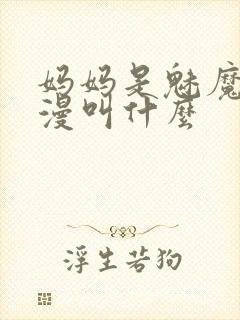 妈妈是魅魔
漫叫什麽
浮生若狗